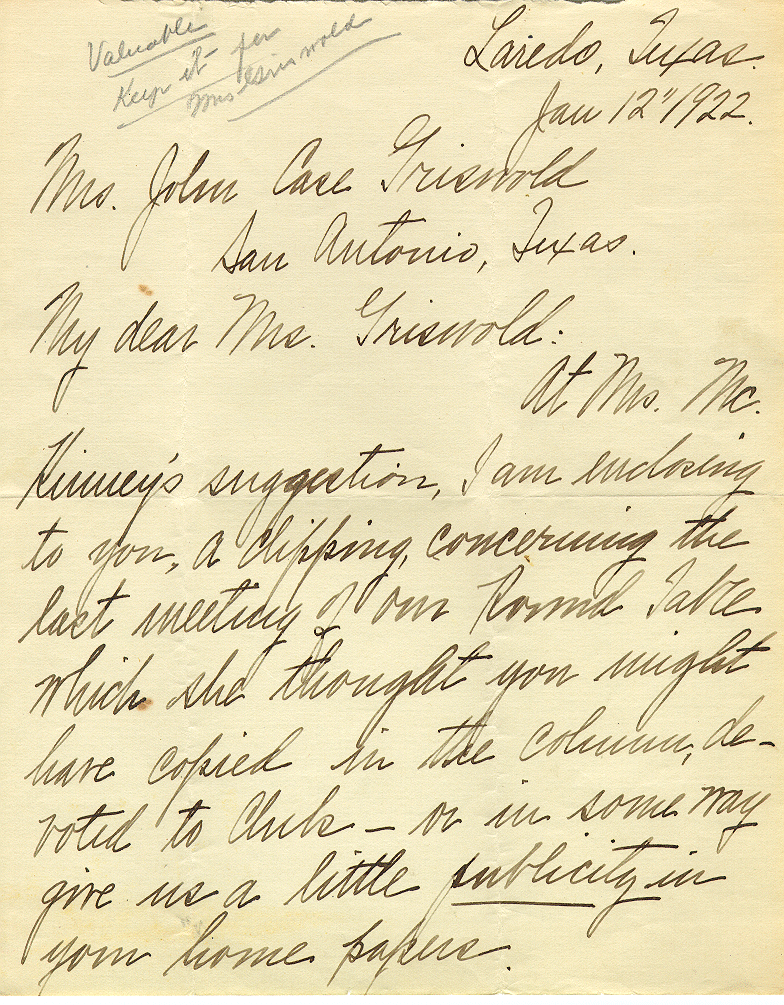 Valuable
Keep it for
Mrs Griswold
Laredo, Texas.
Jan 12" 1922.
Mrs. John Case Griswold
San Antonio, Texas.
My dear Mrs. Griswold:
At Mrs. Mc.
Kinney's suggestion, I am enclosing
to you, a clipping, concerning the
last meeting of our Round Table
which she thought you might
have copied in the column, de-
voted to Clubs – or in some way
give us a little publicity in
your home papers.